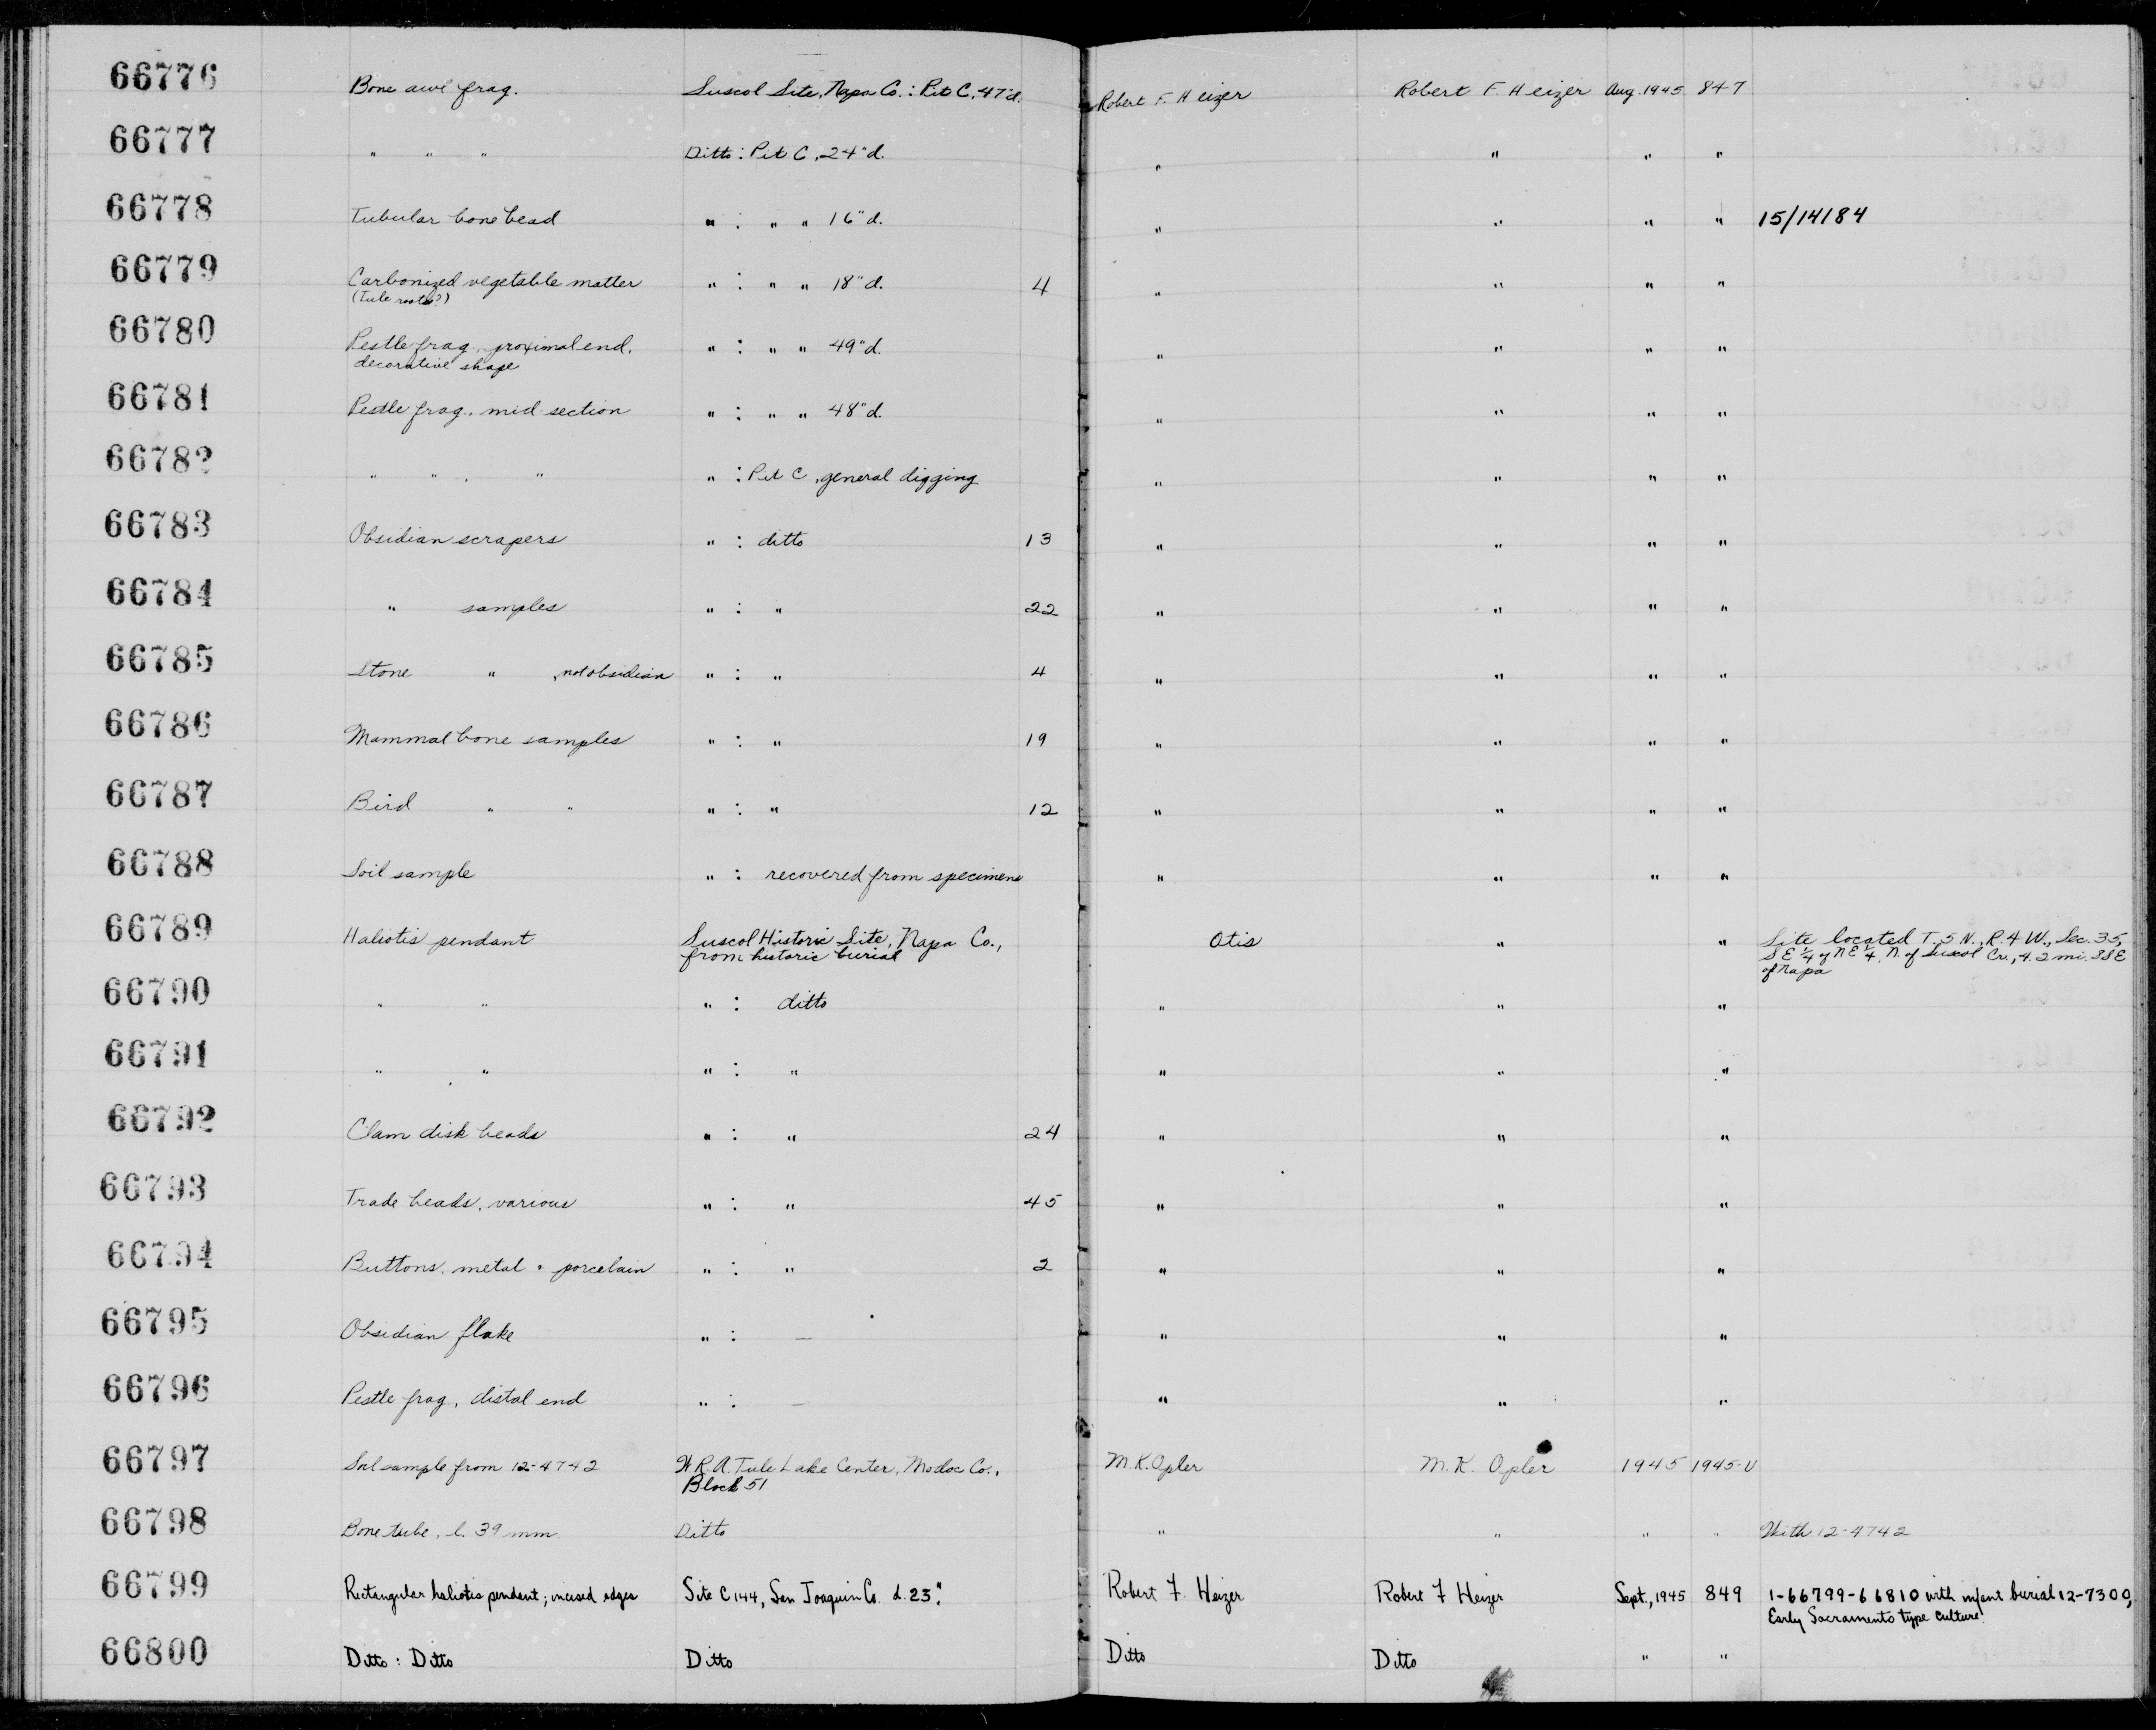 66776 Bone awl frag. Suscol Site, Napa Co.: Pit C, 47"d. Robert F. Heizer Robert F. Heizer Aug. 1945 847
66777 " " " Ditto: Pit C, 24"d. " " " "
66778 Tubular bone bead " : " " 16"d. " " " " 15/14184
66779 Carbonized vegetable matter " : " " 18"d. 4 " " " "
(tule roots?)
66780 Pestle frag., proximal end, " : " " 49"d. " " " "
decorative shape
66781 Pestle frag., mid-section " : " " 48"d. " " " "
66782 " " , " " : Pit C, general digging " " " "
66783 Obsidian scrapers " : ditto 13 " " " "
66784 " samples " : " 22 " " " "
66785 Stone " , not obsidian " : " 4 " " " "
66786 Mammal bone samples " : " 19 " " " "
66787 Bird " " " : " 12 " " " "
66788 Soil sample " : recovered from specimens " " " "
66789 Haliotis pendant Suscol Historic Site, Napa Co., Otis " " Site located T. 5 N., R. 4 W., Sec. 35,
from historic burial SE ¼ of NE ¼, N. of Suscol Cr., 4.2 mi. SSE
of Napa
66790 " " " : ditto " " "
66791 " " " : " " " "
66792 Clam disk beads " : " 24 " " "
66793 Trade beads, various " : " 45 " " "
66794 Buttons, metal + porcelain " : " 2 " " "
66795 Obsidian flake " : — " " "
66796 Pestle frag., distal end " : — " " "
66797 Soil sample from 12-4742 W.R.A. Tule Lake Center, Modoc Co., M.K. Opler M.K. Opler 1945 1945-U
Block 51
66798 Bone tube, l. 39 mm. Ditto " " " " With 12-4742
66799 Rectangular haliotis pendant; incised edges Site C144, San Joaquin Co. d. 23". Robert F. Heizer Robert F Heizer Sept., 1945 849 1-66799-66810 with infant burial 12-7300,
Early Sacramento type culture.
66800 Ditto: Ditto Ditto Ditto Ditto " "